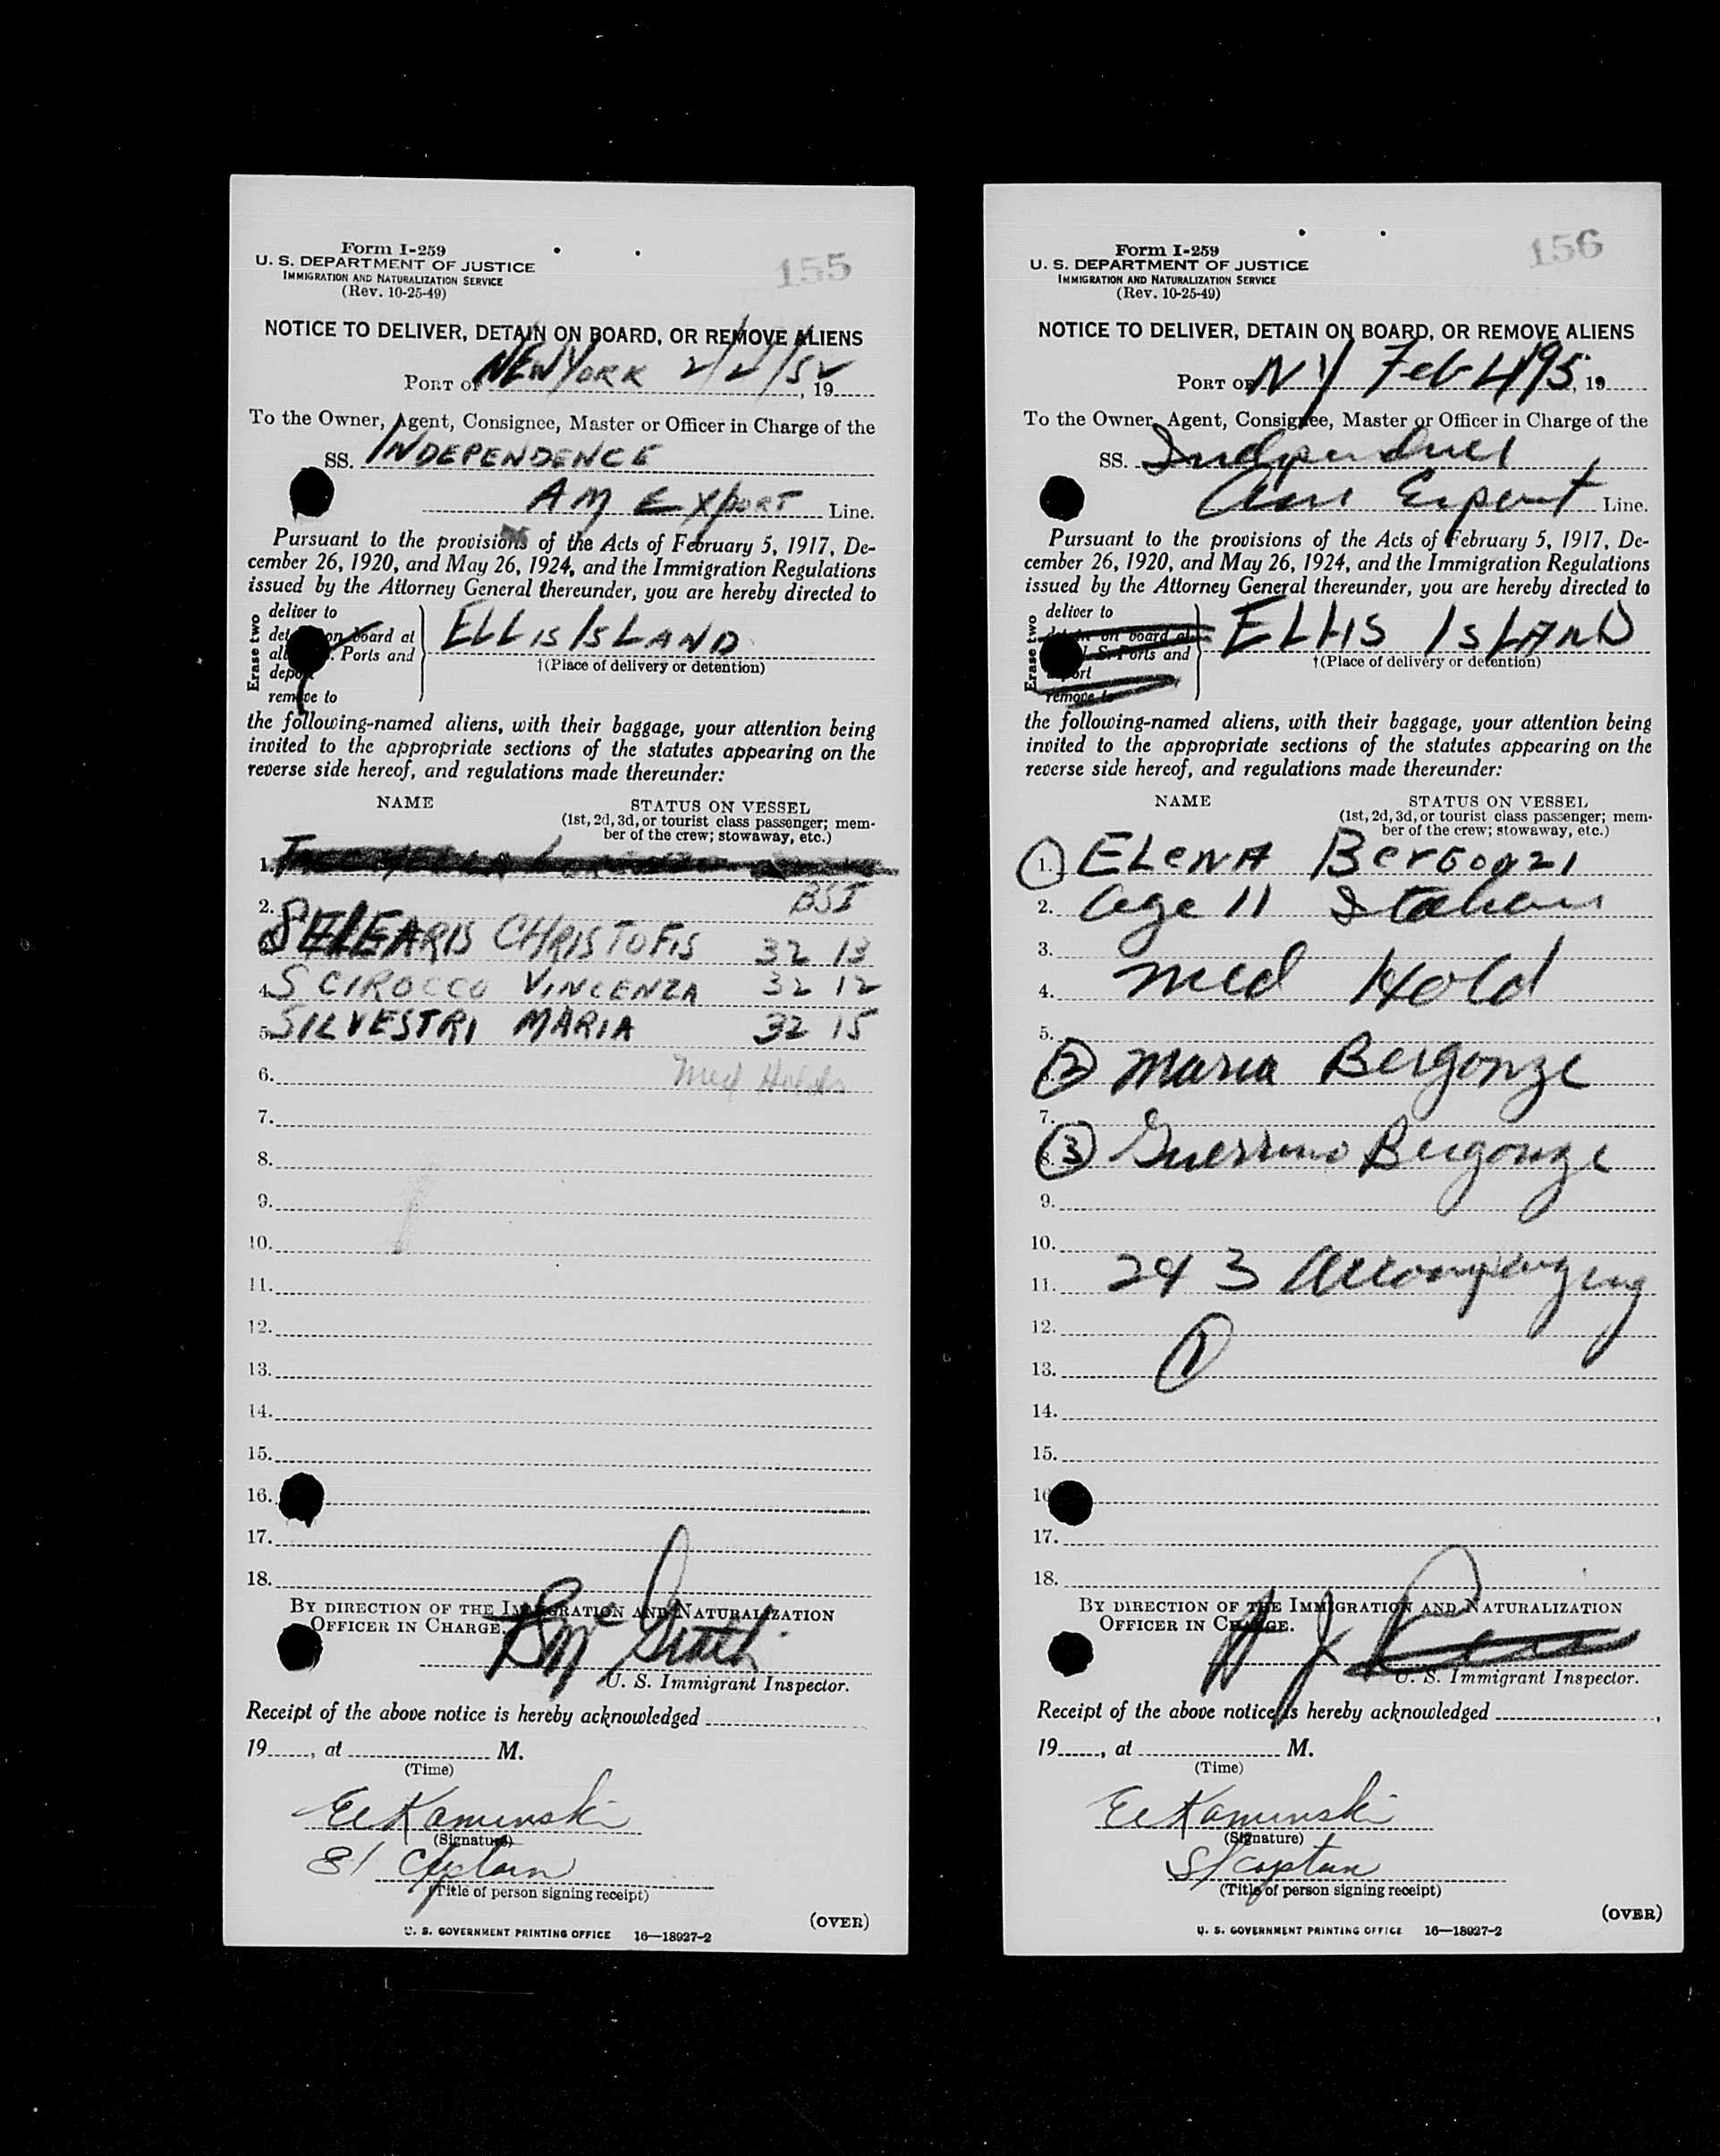 Form I-259
U. S. DEPARTMENT OF JUSTICE
IMMIGRATION AND NATURALIZATION SERVICE
(Rev. 10-25-49)
155
NOTICE TO DELIVER, DETAIN ON BOARD, OR REMOVE ALIENS
PORT OF NEW YORK 2/4/52, 19
To the Owner, Agent, Consignee, Master or Officer in Charge of the
SS. INDEPENDENCE
AM EXPORT Line.
Pursuant to the provisions of the Acts of February 5, 1917, De-
cember 26, 1920, and May 26, 1924, and the Immigration Regulations
issued by the Attorney General thereunder, you are hereby directed to
Erase two
deliver to
on board at
Ports and
remove to
ELLIS ISLAND
†(Place of delivery or detention)
the following-named aliens, with their baggage, your attention being
invited to the appropriate sections of the statutes appearing on the
reverse side hereof, and regulations made thereunder:
NAME
STATUS ON VESSEL
(1st, 2d, 3d, or tourist class passenger; mem-
ber of the crew; stowaway, etc.)
1.
2. BSI
CHRISTOFIS 32 13
4. SCIROCCO VINCENZA 32 12
5. SILVESTRI MARIA 32 15
6. Med Holds
7.
8.
9.
10.
11.
12.
13.
14.
15.
16.
17.
18.
BY DIRECTION OF THE IMMIGRATION AND NATURALIZATION
OFFICER IN CHARGE.
U. S. Immigrant Inspector.
Receipt of the above notice is hereby acknowledged
19, at M.
(Time)
EE Kaminski
(Signature)
S/ Captain
(Title of person signing receipt)
(OVER)
U. S. GOVERNMENT PRINTING OFFICE 16—18927-2
Form I-259
U. S. DEPARTMENT OF JUSTICE
IMMIGRATION AND NATURALIZATION SERVICE
(Rev. 10-25-49)
156
NOTICE TO DELIVER, DETAIN ON BOARD, OR REMOVE ALIENS
PORT OF NY Feb 4, 19
To the Owner, Agent, Consignee, Master or Officer in Charge of the
SS. Independence
Am Export Line.
Pursuant to the provisions of the Acts of February 5, 1917, De-
cember 26, 1920, and May 26, 1924, and the Immigration Regulations
issued by the Attorney General thereunder, you are hereby directed to
Erase two
deliver to
detain on board at
U. S. Ports and
remove to
ELLIS ISLAND
†(Place of delivery or detention)
the following-named aliens, with their baggage, your attention being
invited to the appropriate sections of the statutes appearing on the
reverse side hereof, and regulations made thereunder:
NAME
STATUS ON VESSEL
(1st, 2d, 3d, or tourist class passenger; mem-
ber of the crew; stowaway, etc.)
1. ELENA BERGONZI
2. Age 11 Italian
3.
4. Med Hold
5.
2 Maria Bergonze
7.
8. 3 Guerrino Bergonze
9.
10.
11. 2 & 3 Accompanying
12.
13. 1
14.
15.
16
17.
18.
BY DIRECTION OF THE IMMIGRATION AND NATURALIZATION
OFFICER IN CHARGE.
U. S. Immigrant Inspector.
Receipt of the above notice is hereby acknowledged ,
19, at M.
(Time)
EE Kaminski
(Signature)
S/ Captain
(Title of person signing receipt)
(OVER)
U. S. GOVERNMENT PRINTING OFFICE 16—18927-2